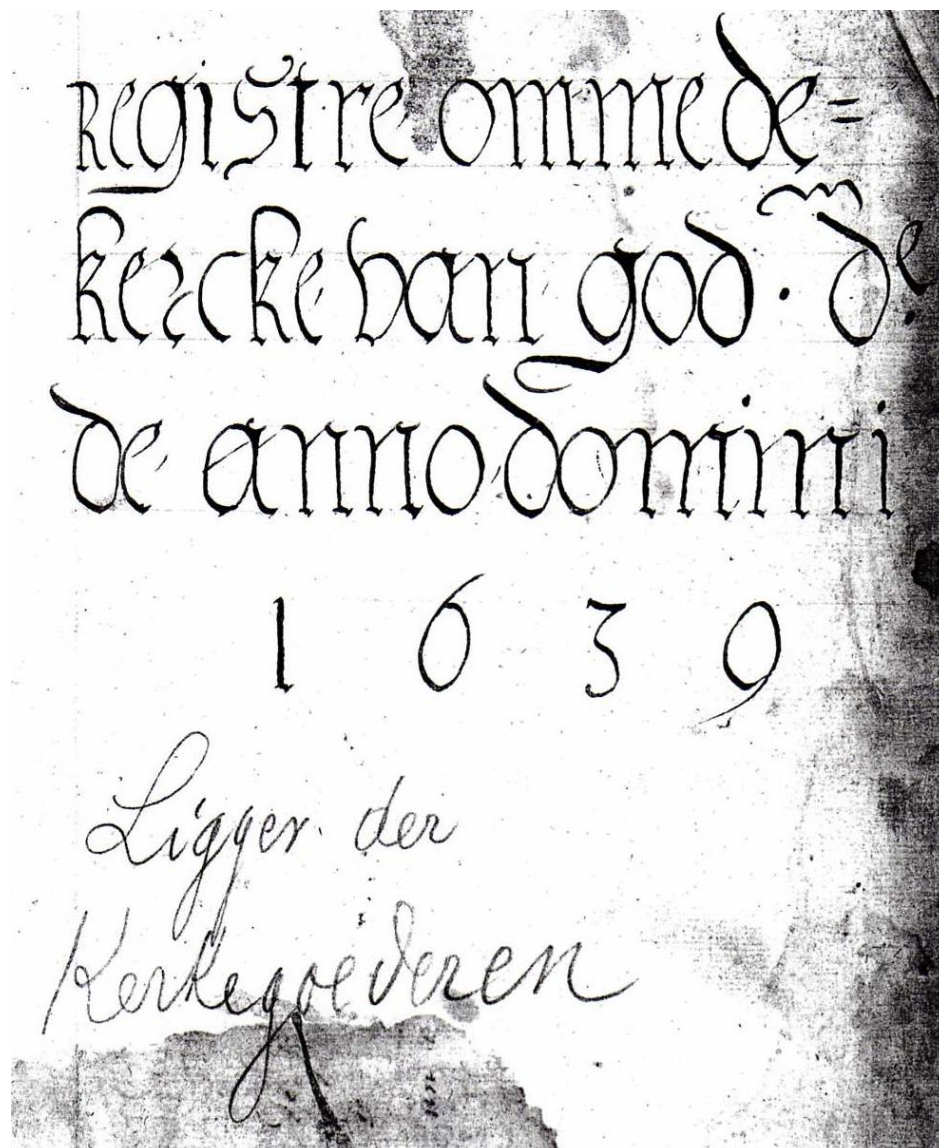 Registre omme de=
kercke van god. de.
de anno domini
1639
Ligger der
Kerkegoederen